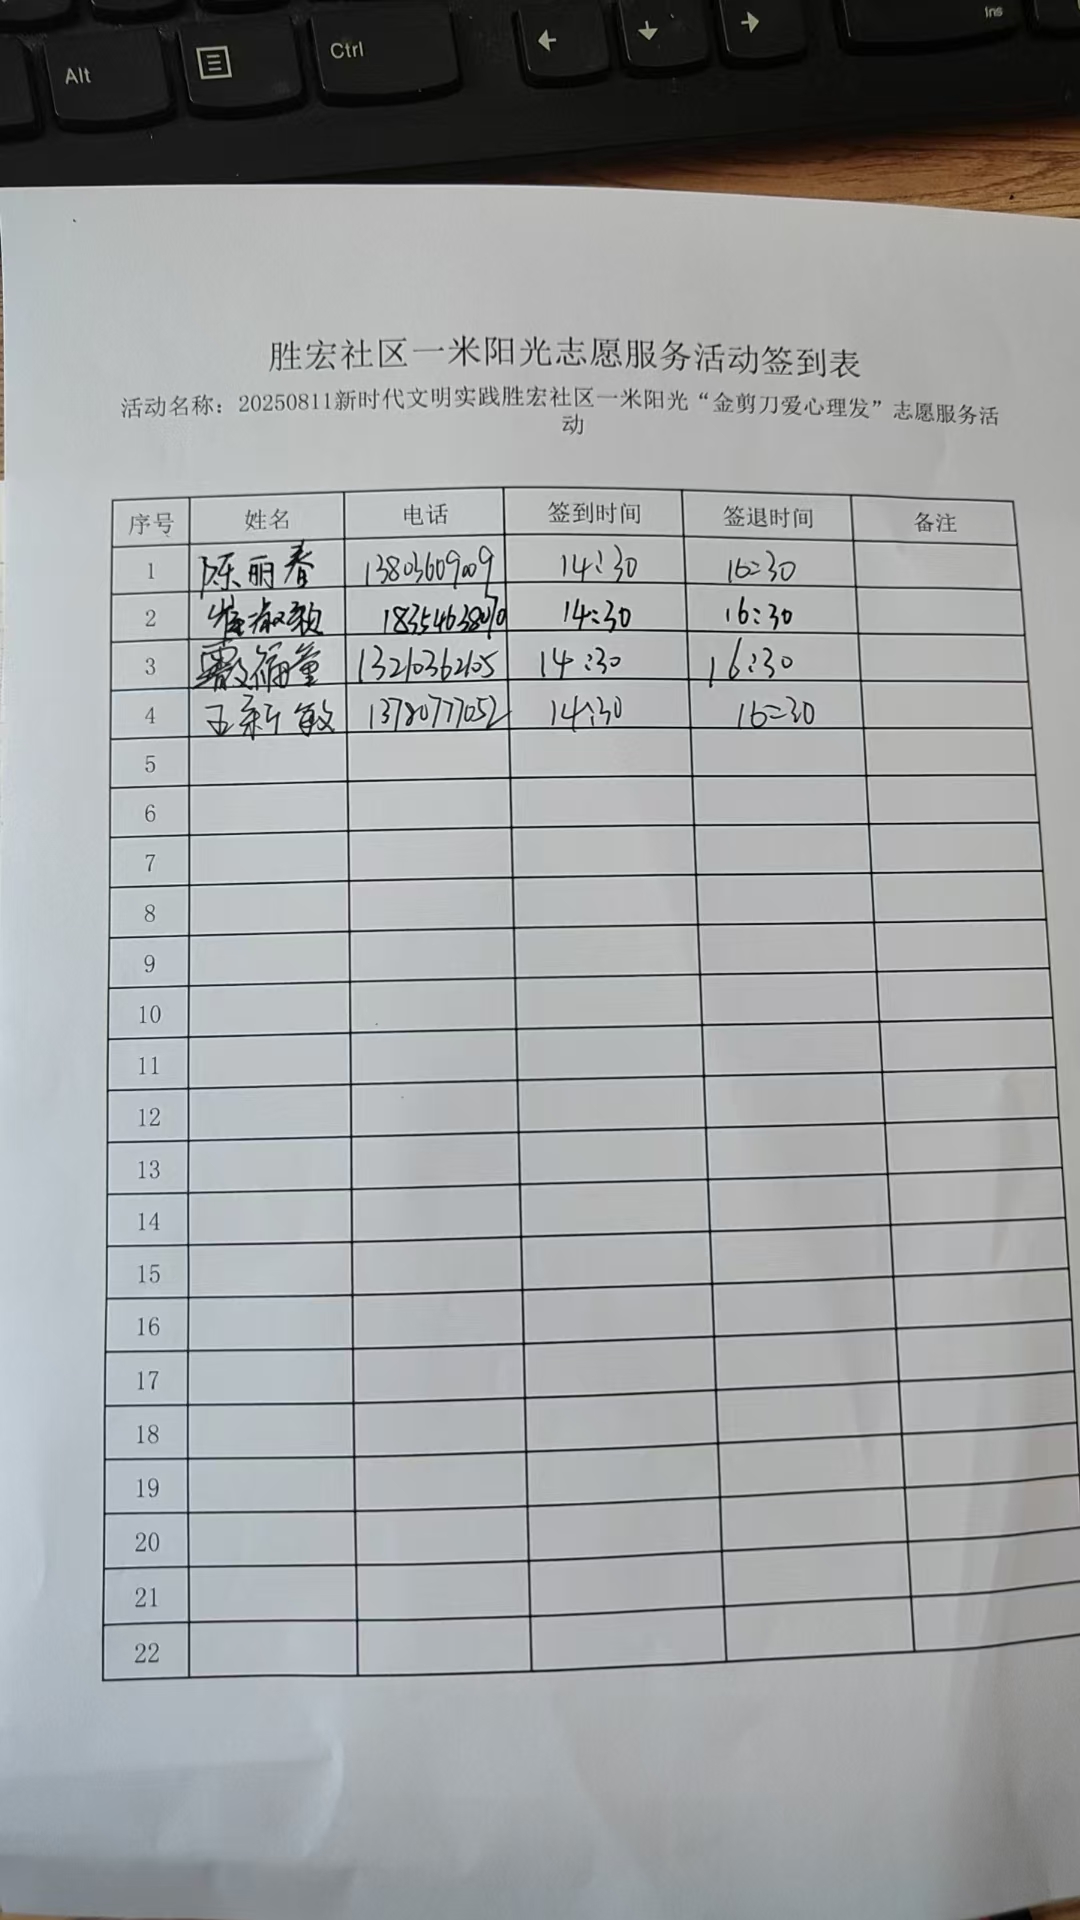 Alt
Ctrl
←
↓
→
Ins
胜宏社区一米阳光志愿服务活动签到表
活动名称：20250811新时代文明实践胜宏社区一米阳光“金剪刀爱心理发”志愿服务活
动
序号 姓名 电话 签到时间 签退时间 备注
1 陈丽春 13803609009 14:30 16:30
2 崔淑颖 14:30 16:30
3 13210362105 14:30 16:30
4 王新敏 13780777052 14:30 16:30
5
6
7
8
9
10
11
12
13
14
15
16
17
18
19
20
21
22